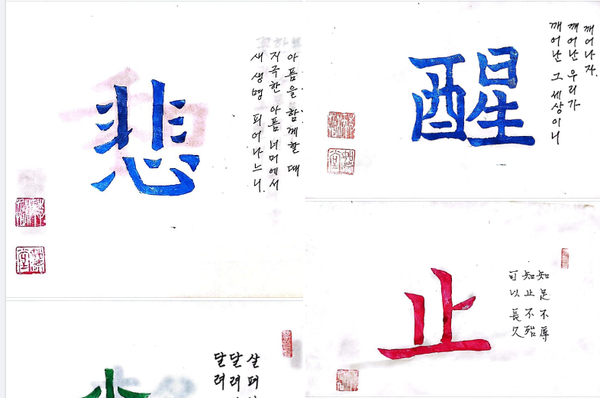 悲
아픔을 함께할 때
지극한 아픔 너머에서
새 생명 피어나느니.
醒
깨어나자.
깨어난 우리가
깨어난 그 세상이니
止
知足不辱
知止不殆
可以長久
달려
달려